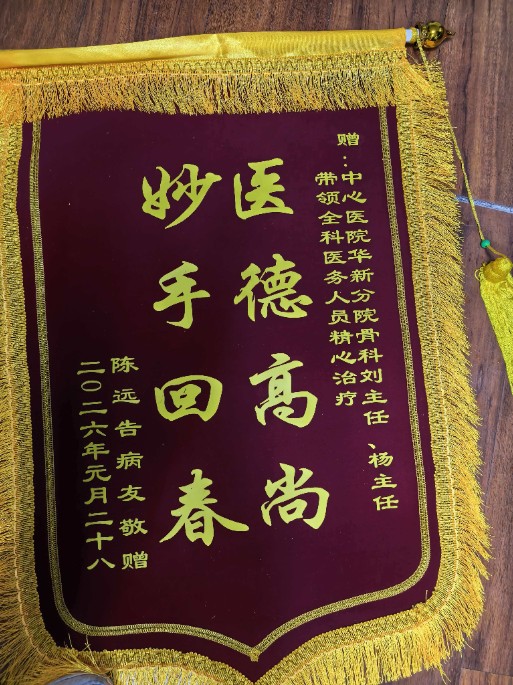 赠：中心医院华新分院骨科刘主任、杨主任
带领全科医务人员精心治疗
医德高尚
妙手回春
陈远告病友敬赠
二〇二六年元月二十八